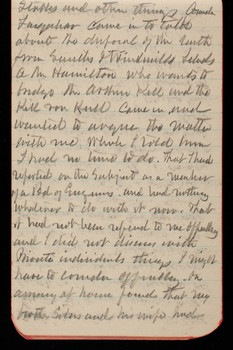 and other things. Comdr
Farquhar came in to talk
about the disposal of the Earth
from Earths &
A Mr Hamilton who wants to
bridge the Arthur Kill and the
Kill von Kull. Came in and
wanted to argue the matter
with me, which I told him
I had no time to do. That I had
reported on the subject as a member
of a Bd of Engineers and had nothing
whatever to do with it now. That
it had not been referred to me officially
and I did not discuss with
private individuals things I might
have to consider officially. On
arriving at home found that my
and his wife had